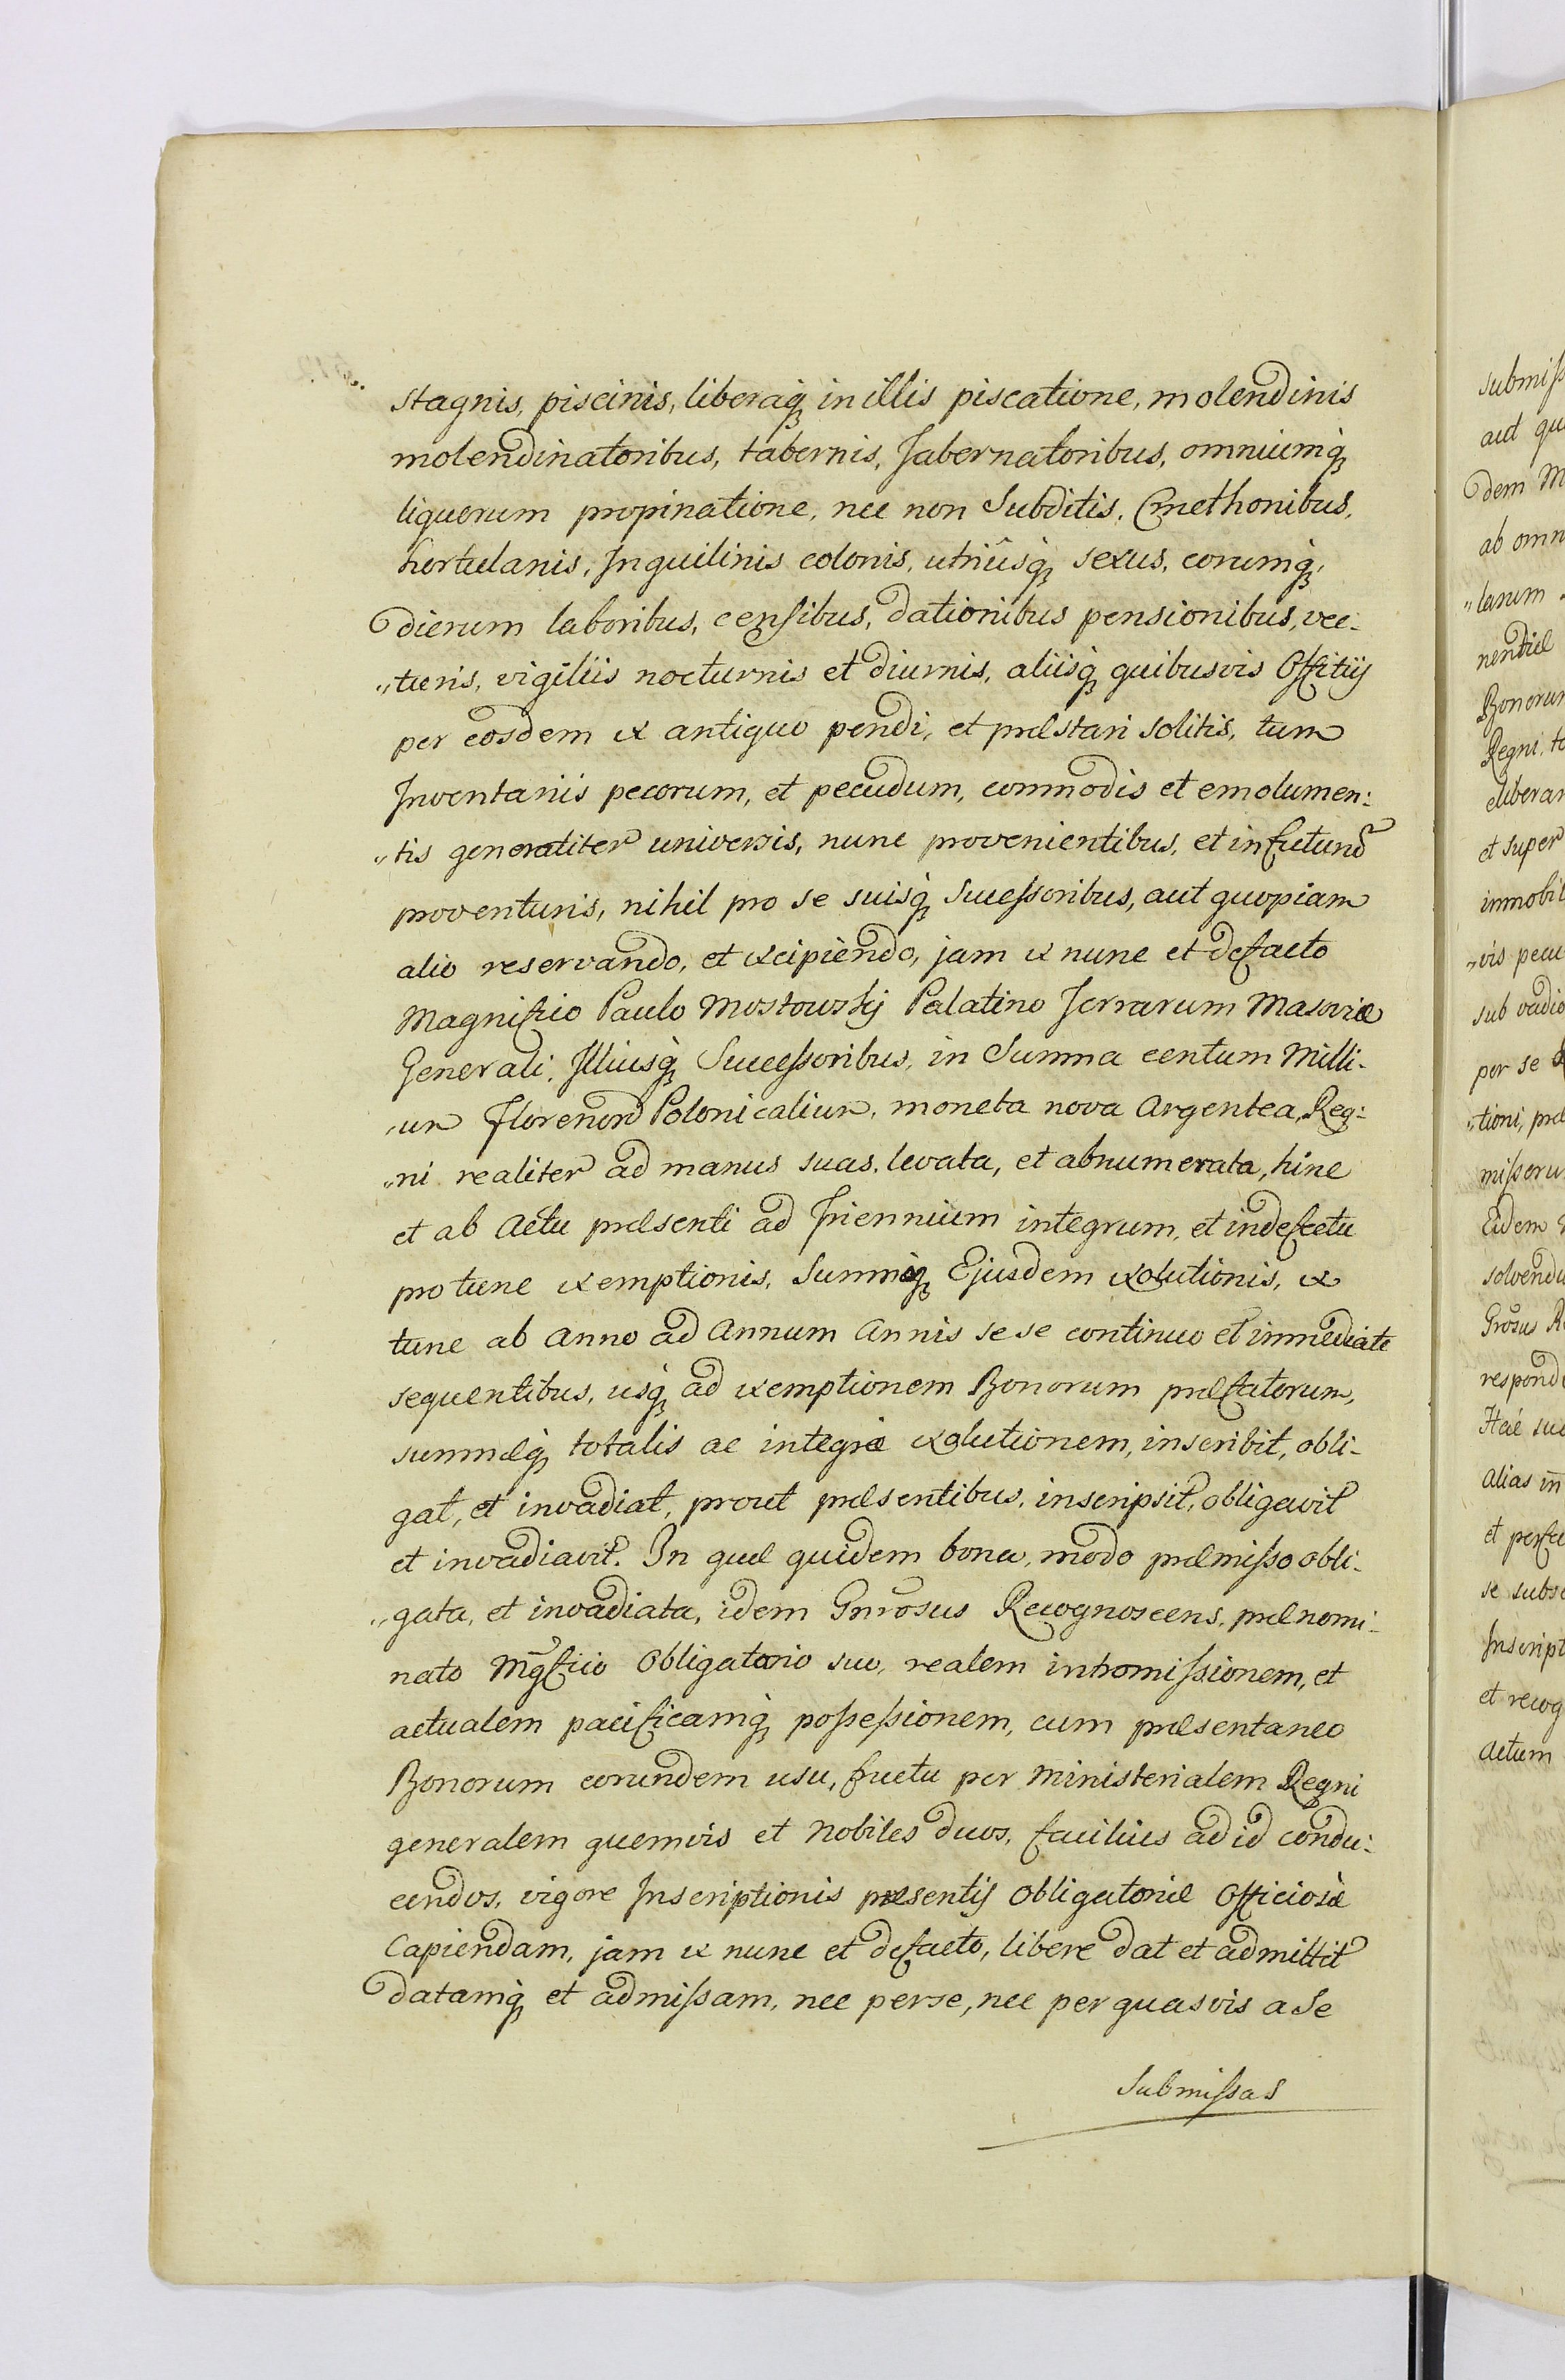 stagnis, piscinis, liberaq́ue in illis piscatione, molendinis
molendinatoribus, tabernis, Tabernatoribus, omniumq́ue
liquorum propinatione, nec non Subditis, Cmethonibus,
hortulanis, Inquilinis colonis, utriûsq́ue sexus, eorumq́ue,
dierum laboribus, censibus, dationibus pensionibus, vec-
„turis, vigiliis nocturnis et diurnis, aliisq́ue quibusvis Offitiis
per eosdem ex antiquo pendi, et præstari solitis, tum
Inventariis pecorum, et pecudum, commodis et emolumen:
„tis generaliter universis, nunc provenientibus, et in futurũ
proventuris, nihil pro se suisq́ue Sucessoribus, aut quopiam
alio reservando, et excipièndo, jam ex nunc et defacto
Magnifico Paulo Mostowskij Palatino Terrarum Masoviæ
Generali, Illiusq́ue Successoribus, in Summa centum Milli-
„um Florenorũ Polonicalium, moneta nova Argentea, Reg:
„ni realiter ad manus suas, levata, et abnumerata, hinc
et ab Actu præsenti ad Triennium integrum, et indefectu
pro tunc exemptionis, Summæq́ue Ejusdem exolutionis, ex
tunc ab Anno ad Annum Annis se se continuo et immediate
sequentibus, usq́ue ad exemptionem Bonorum præfatorum,
summæq́ue totalis ac integræ exolutionem, inscribit, obli-
gat, et invadiat, prout præsentibus, inscripsit, obligavit
et invadiavit. In quæ quidem bona, modo præmisso obli-
„gata, et invadiata, idem Gnrõsus Recognoscens, prænomi-
nato Mg̃fico Obligatorio suo, realem intromissionem, et
actualem pacificamq́ue possessionem, cum præsentaneo
Bonorum eorundem usu, fructu per Ministerialem Regni
generalem quemvis et Nobiles duos, facilius ad id condu:
cendos, vigore Inscriptionis præsentis Obligatoriæ Officiosè
Capiendam, jam ex nunc et defacto, libere dat et admittit
datamq́ue et admissam, nec per se, nec per quasvis a Se
Submissas